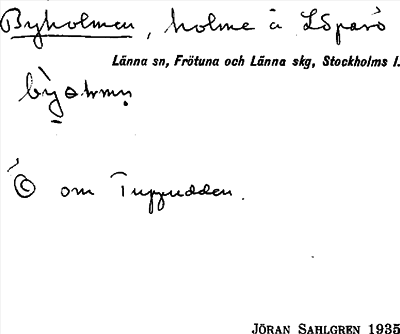 Byholmen, holme å Löparö
Länna sn, Frötuna och Länna skg, Stockholms l.
om Tuppudden.
JÖRAN SAHLGREN 1935